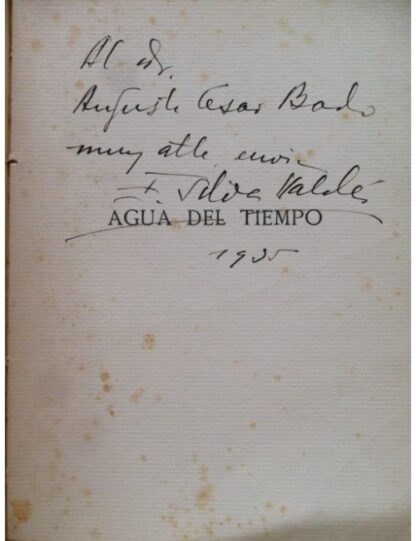 Al dr.
Augusto Cesar Bado
muy atte. envia
F. Silva Valdés
AGUA DEL TIEMPO
1935